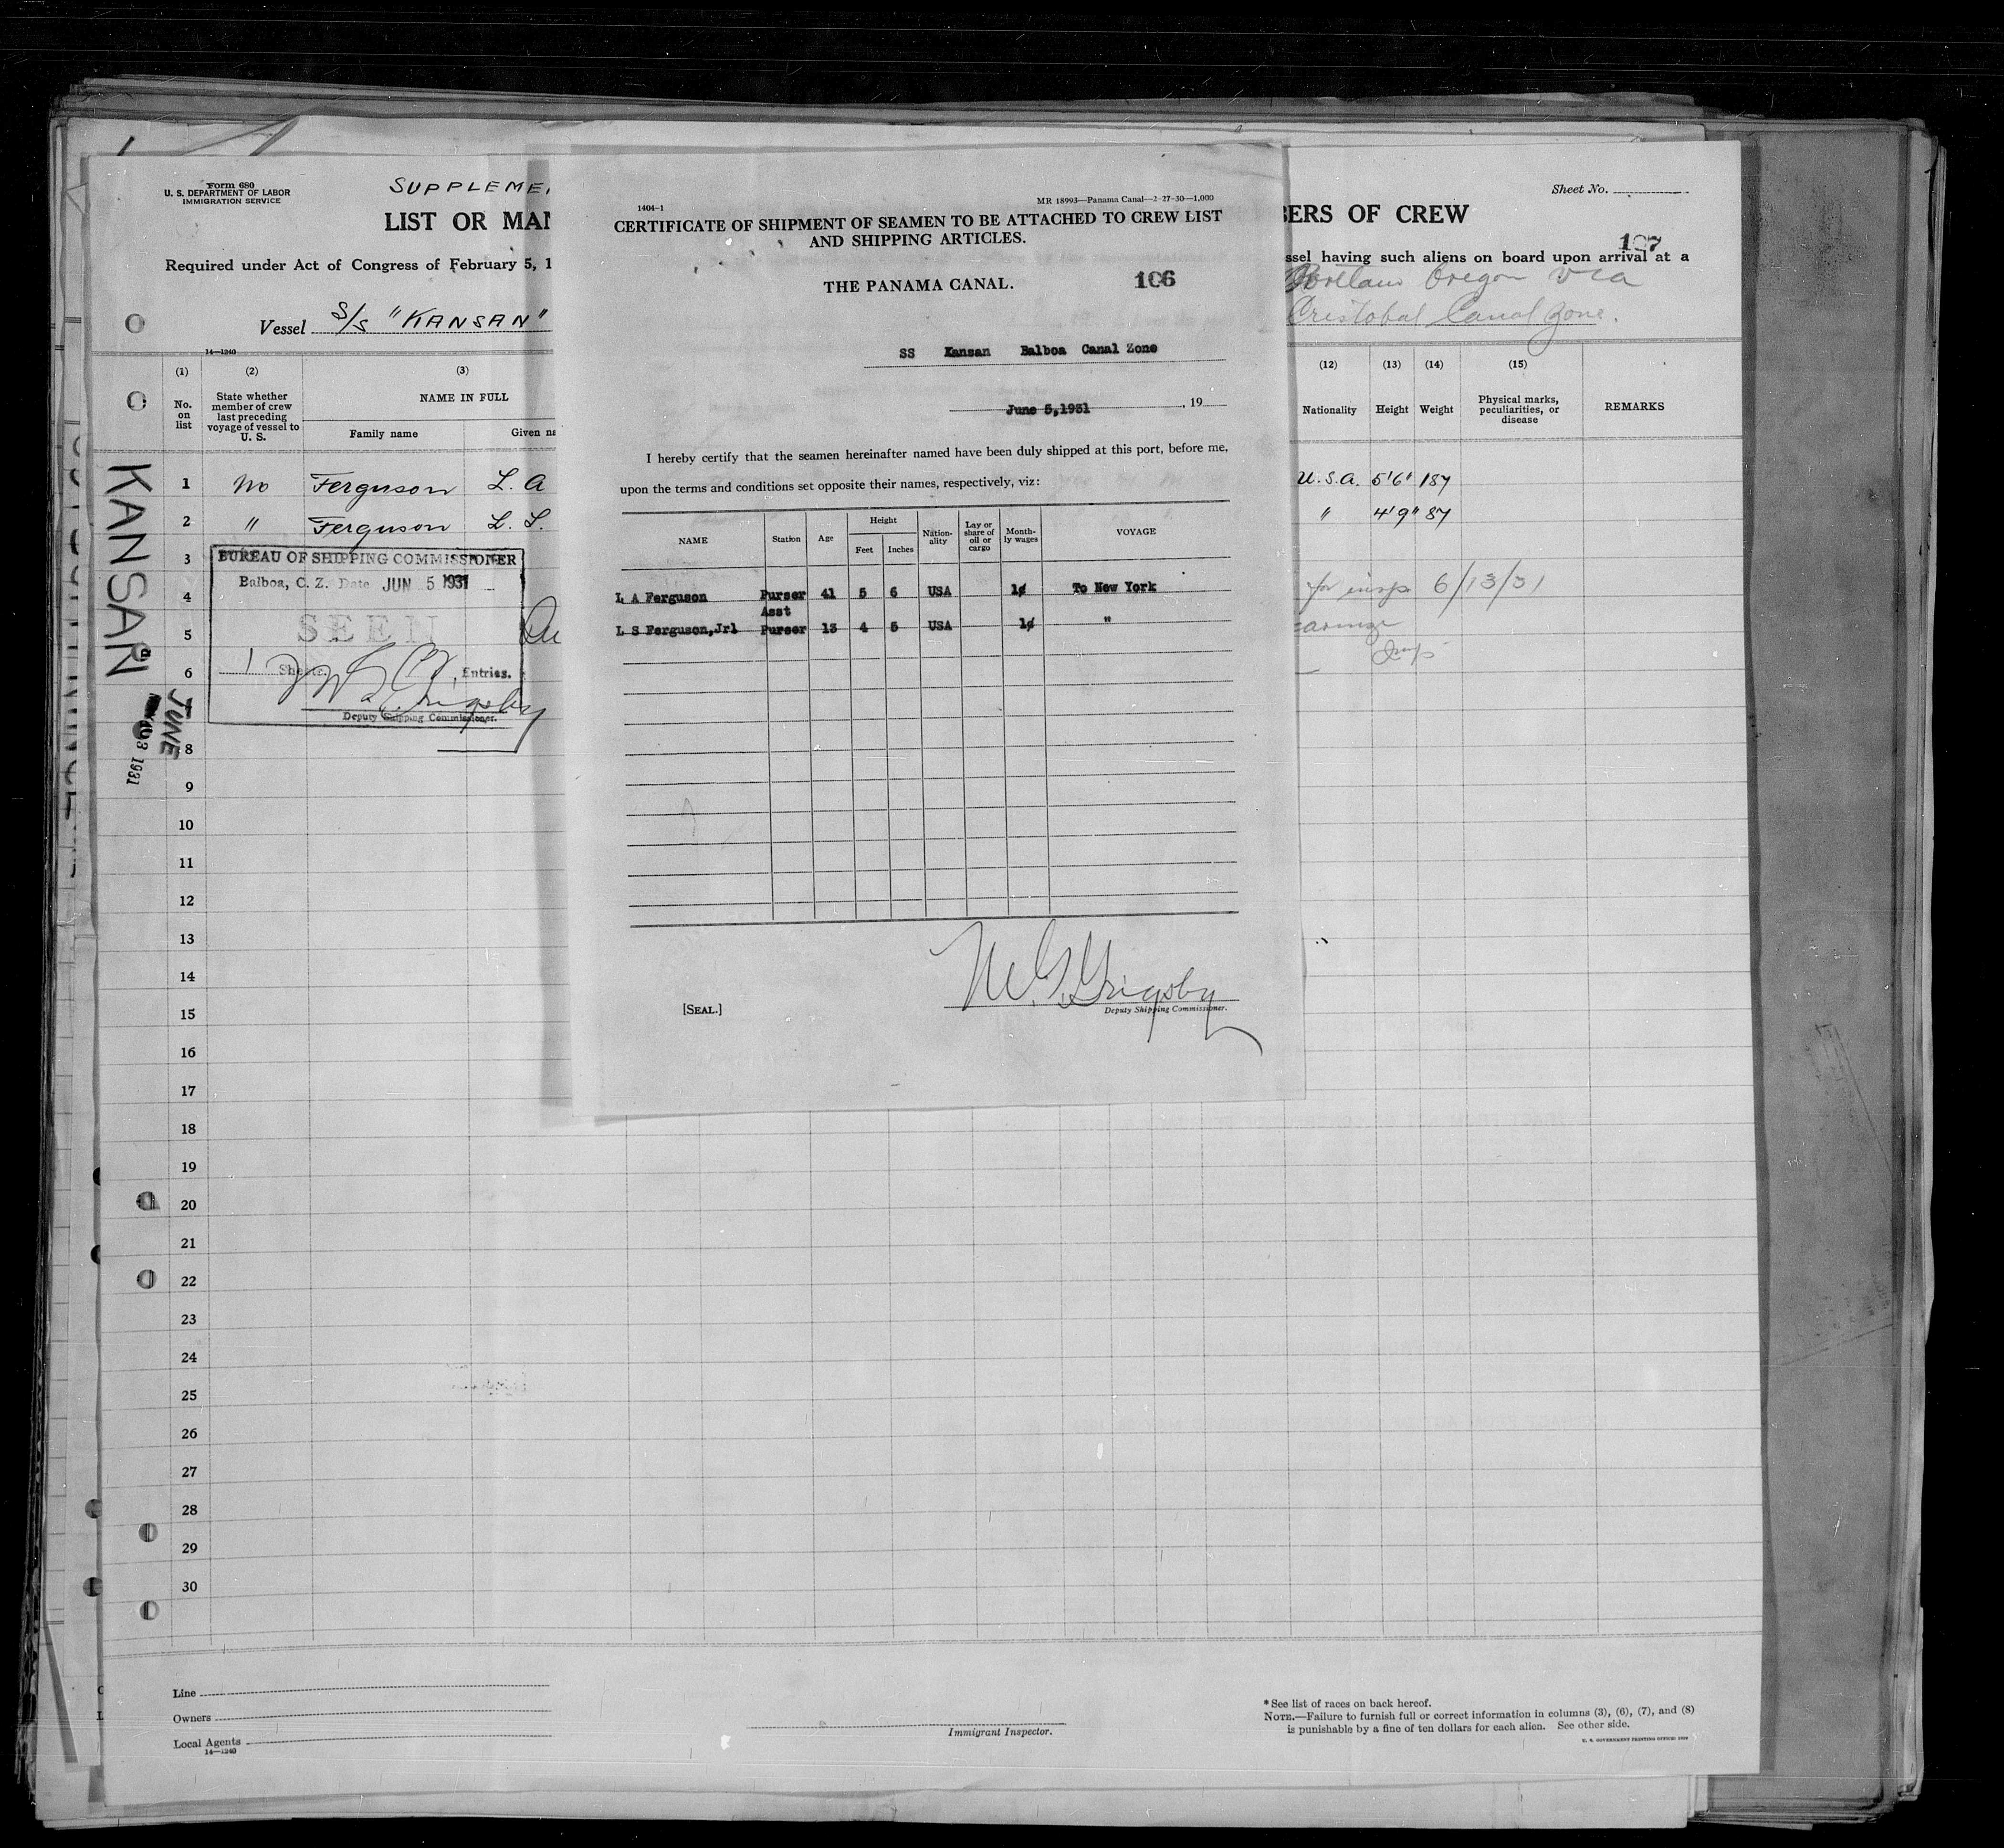 Form 680
U. S. DEPARTMENT OF LABOR
IMMIGRATION SERVICE
SUPPLEME
LIST OR MAN
Required under Act of Congress of February 5, 1
Vessel S/S "KANSAN"
14—1240
(1) (2) (3)
No. on list
State whether member of crew last preceding voyage of vessel to U. S.
NAME IN FULL
Family name Given na
1 No Ferguson L. A
2 " Ferguson L. S.
3
4
5
6
8
9
10
11
12
13
14
15
16
17
18
19
20
21
22
23
24
25
26
27
28
29
30
KANSAN
JUNE
1931
BUREAU OF SHIPPING COMMISSIONER
Balboa, C. Z. Date JUN 5 1931
SEEN
1 Sheets. Entries.
Deputy Shipping Commissioner.
1404-1
MR 18993—Panama Canal—2-27-30—1,000
CERTIFICATE OF SHIPMENT OF SEAMEN TO BE ATTACHED TO CREW LIST
AND SHIPPING ARTICLES.
THE PANAMA CANAL. 106
SS Kansan Balboa Canal Zone
June 5,1931 , 19
I hereby certify that the seamen hereinafter named have been duly shipped at this port, before me,
upon the terms and conditions set opposite their names, respectively, viz:
NAME Station Age Height Feet Inches Nation-ality Lay or share of oil or cargo Month-ly wages VOYAGE
L A Ferguson Purser 41 5 6 USA 1¢ To New York
Asst
L S Ferguson,Jrl Purser 13 4 5 USA 1¢ "
[SEAL.]
W. G. Grigsby
Deputy Shipping Commissioner.
Sheet No.
BERS OF CREW
107
ssel having such aliens on board upon arrival at a
Portland Oregon via
Cristobal Canal Zone.
(12) (13) (14) (15)
Nationality Height Weight Physical marks, peculiarities, or disease REMARKS
U.S.A. 5'6" 187
" 4'9" 87
for insp 6/13/31
Insp
Line
Owners
Local Agents
14—1240
Immigrant Inspector.
* See list of races on back hereof.
NOTE.—Failure to furnish full or correct information in columns (3), (6), (7), and (8)
is punishable by a fine of ten dollars for each alien. See other side.
U. S. GOVERNMENT PRINTING OFFICE: 1929